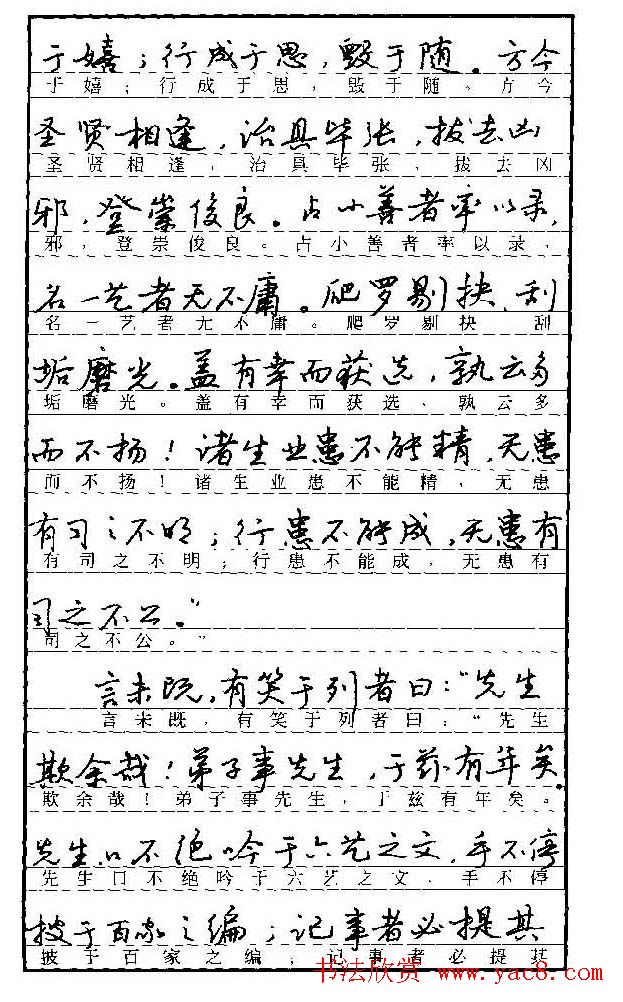 于嬉；行成于思，毁于随。方今
于嬉；行成于思，毁于随。方今
圣贤相逢，治具毕张，拔去凶
圣贤相逢，治具毕张，拔去凶
邪，登崇俊良。占小善者率以录，
邪，登崇俊良。占小善者率以录，
名一艺者无不庸。爬罗剔抉，刮
名一艺者无不庸。爬罗剔抉 刮
垢磨光。盖有幸而获选，孰云多
垢磨光。盖有幸而获选，孰云多
而不扬！诸生业患不能精，无患
而不扬！诸生业患不能精，无患
有司之不明；行患不能成，无患有
有司之不明；行患不能成，无患有
司之不公。”
司之不公。”
言未既，有笑于列者曰：“先生
言未既，有笑于列者曰：“先生
欺余哉！弟子事先生，于兹有年矣。
欺余哉！弟子事先生，于兹有年矣。
先生口不绝吟于六艺之文，手不停
先生口不绝吟于六艺之文，手不停
披于百家之编；记事者必提其
披于百家之编；记事者必提其
书法欣赏 www.yac8.com